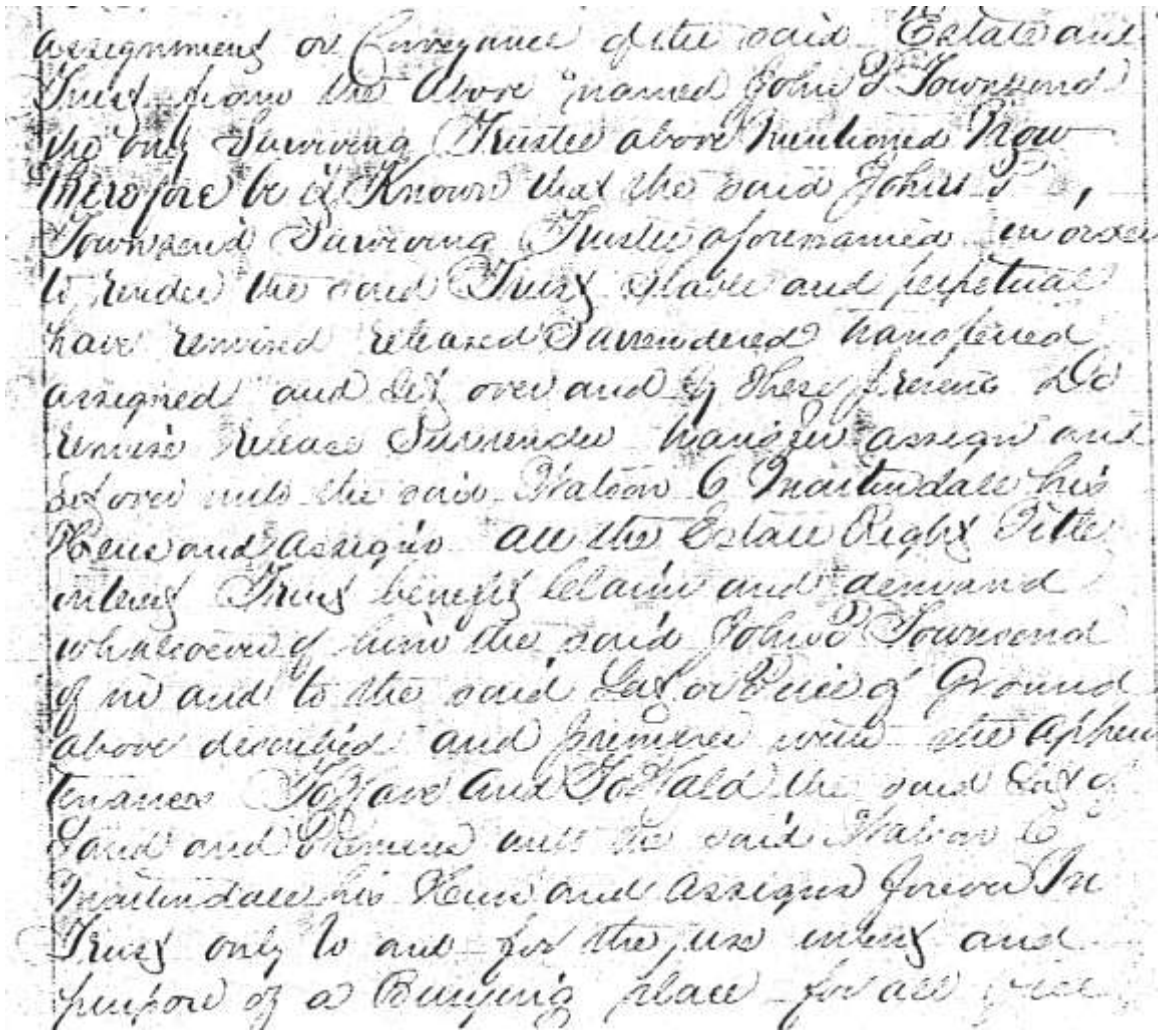 assignment or Conveyance of the said Estate and
Trust from the Above named John P Townsend
the only Surviving Trustee above Mentioned Now
therefore be it Known that the said John P
Townsend Surviving Trustee aforenamed in order
to render the said Trust Stable and perpetual
have remised released Surrendered transferred
assigned and Set over and by these presents Do
remise release Surrender transfer assign and
Set over unto the said Watson C Martindale his
Heirs and Assigns all the Estate Right Title
interest Trust benefit Claim and demand
whatsoever of him the said John P Townsend
of in and to the said Lot or Piece of Ground
above described and premises with the Appur
tenances To Have And To Hold the said Lot of
Land and Premises unto the said Watson C
Martindale his Heirs and Assigns forever In
Trust only to and for the use intent and
purpose of a Burying place for all